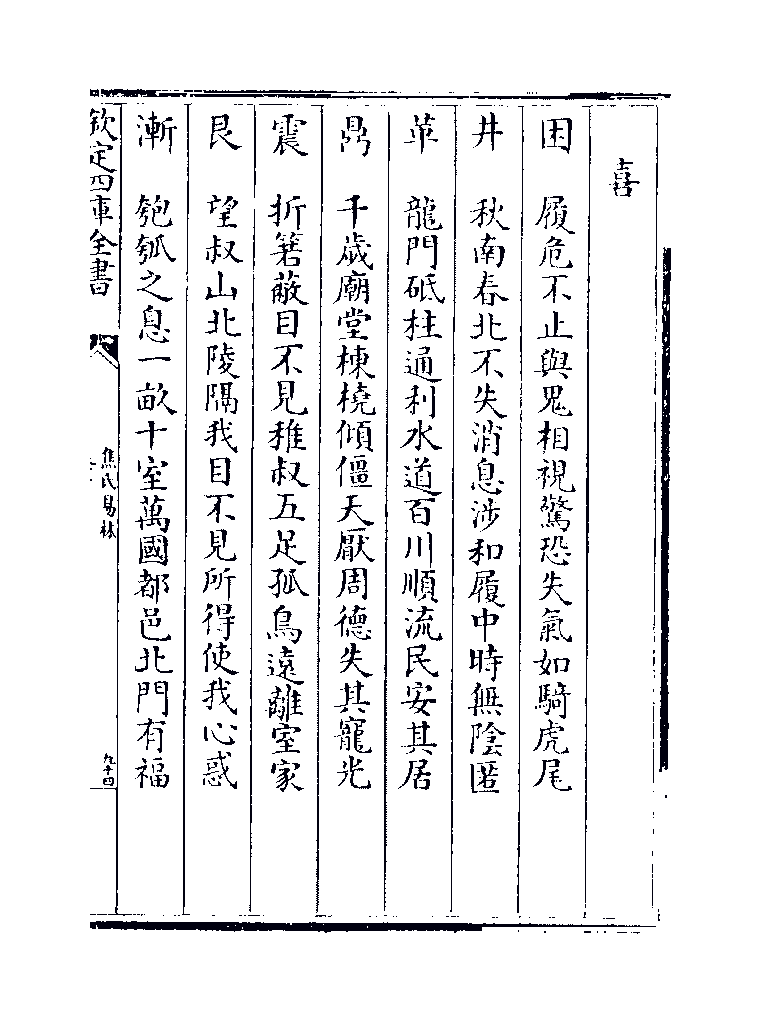 喜
困　履危不止與鬼相視驚恐失氣如騎虎尾
井　秋南春北不失消息涉和履中時無陰匿
革　龍門砥柱通利水道百川順流民安其居
鼎　千歲廟堂棟橈傾僵天厭周德失其寵光
震　折箬蔽目不見稚叔五足孤鳥遠離室家
艮　望叔山北陵隔我目不見所得使我心惑
漸　匏瓠之息一畝十室萬國都邑北門有福
欽定四庫全書
焦氏易林
九十四